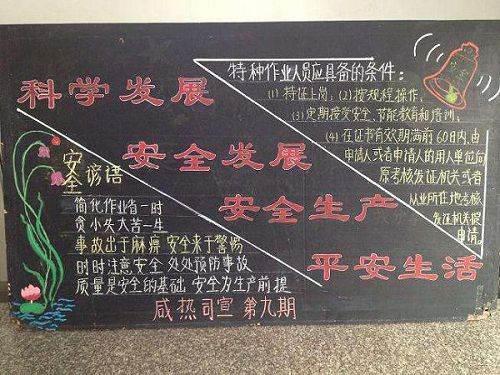 科学发展
安全发展
安全生产
平安生活
特种作业人员应具备的条件：
(1) 持证上岗；(2) 按规程操作；
(3) 定期接受安全、节能教育和培训；
(4) 在证书有效期满前60日内,由
申请人或者申请人的用人单位向
原考核发证机关或者
从业所在地考核
发证机关提
申请。
安全谚语
简化作业省一时
贪小失大苦一生
事故出于麻痹 安全来于警惕
时时注意安全 处处预防事故
质量是安全的基础 安全为生产前提
咸热司宣 第九期